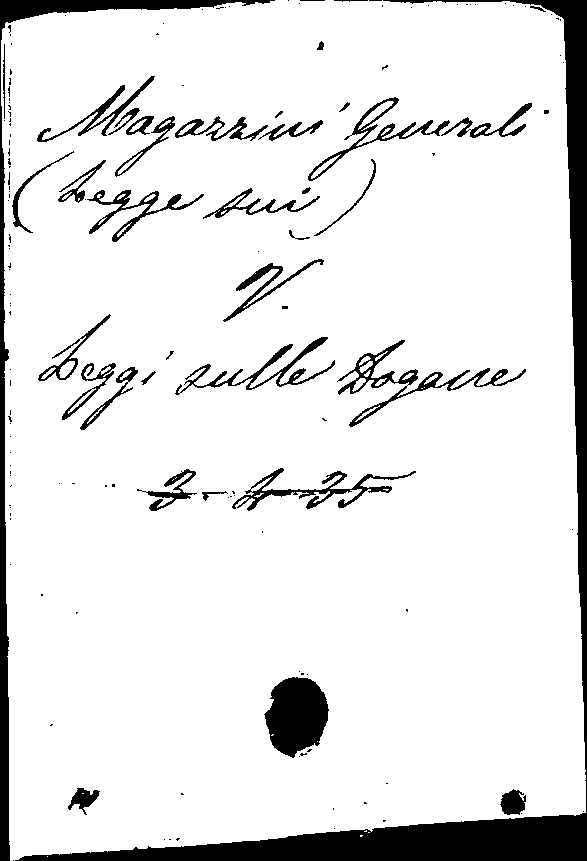 Magazzini Generali
(Legge sui)
V.
Leggi sulle Dogane
3. L 35